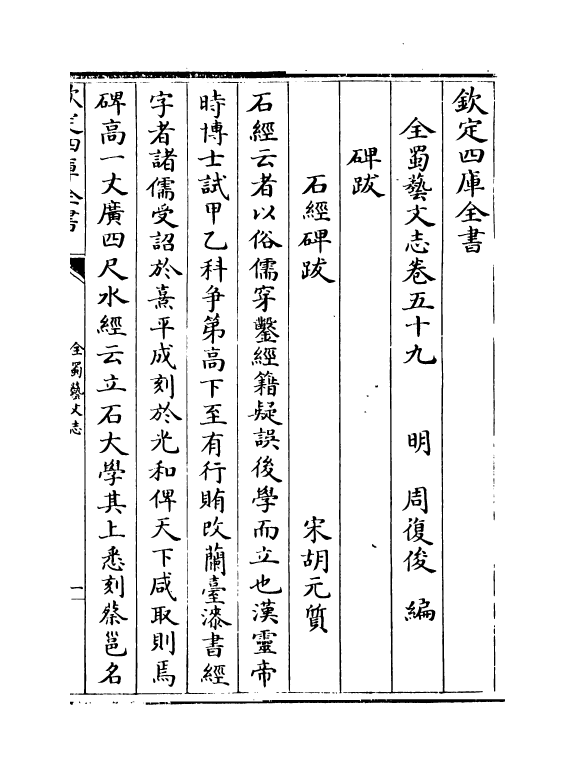 欽定四庫全書
全蜀藝文志卷五十九 明 周復俊 編
碑跋
石經碑跋 宋胡元質
石經云者以俗儒穿鑿經籍疑誤後學而立也漢靈帝
時博士試甲乙科争第高下至有行賄改蘭臺漆書經
字者諸儒受詔於熹平成刻於光和俾天下咸取則焉
碑高一丈廣四尺水經云立石大學其上悉刻蔡邕名
欽定四庫全書
全蜀藝文志
一